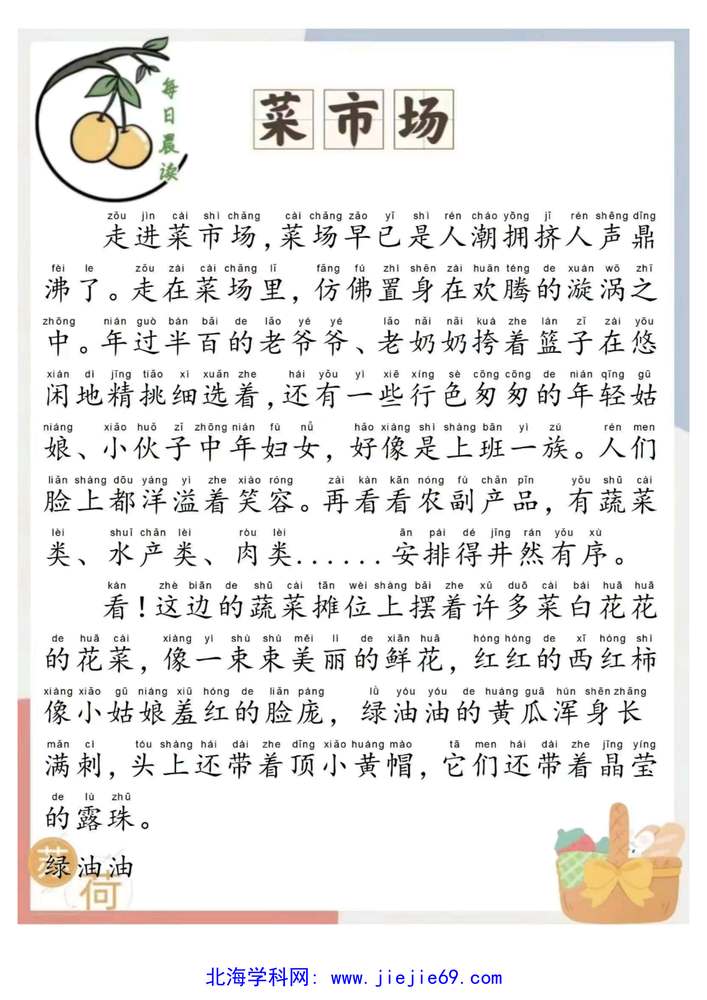 每日晨读
菜市场
zǒu jìn cài shì chǎng cài chǎng zǎo yǐ shì rén cháo yōng jǐ rén shēng dǐng
走进菜市场,菜场早已是人潮拥挤人声鼎
fèi le zǒu zài cài chǎng lǐ fǎng fú zhì shēn zài huān téng de xuán wō zhī
沸了。走在菜场里,仿佛置身在欢腾的漩涡之
zhōng nián guò bàn bǎi de lǎo yé yé lǎo nǎi nǎi kuà zhe lán zǐ zài yōu
中。年过半百的老爷爷、老奶奶挎着篮子在悠
xián dì jīng tiāo xì xuǎn zhe hái yǒu yì xiē xíng sè cōng cōng de nián qīng gū
闲地精挑细选着,还有一些行色匆匆的年轻姑
niáng xiǎo huǒ zǐ zhōng nián fù nǚ hǎo xiàng shì shàng bān yì zú rén men
娘、小伙子中年妇女,好像是上班一族。人们
liǎn shàng dōu yáng yì zhe xiào róng zài kàn kàn nóng fù chǎn pǐn yǒu shū cài
脸上都洋溢着笑容。再看看农副产品,有蔬菜
lèi shuǐ chǎn lèi ròu lèi ān pái dé jǐng rán yǒu xù
类、水产类、肉类......安排得井然有序。
kàn zhè biān de shū cài tān wèi shàng bǎi zhe xǔ duō cài bái huā huā
看!这边的蔬菜摊位上摆着许多菜白花花
de huā cài xiàng yí shù shù měi lì de xiān huā hóng hóng de xī hóng shì
的花菜,像一束束美丽的鲜花,红红的西红柿
xiàng xiǎo gū niáng xiū hóng de liǎn páng lǜ yóu yóu de huáng guā hún shēn zhǎng
像小姑娘羞红的脸庞,绿油油的黄瓜浑身长
mǎn cì tóu shàng hái dài zhe dǐng xiǎo huáng mào tā men hái dài zhe jīng yíng
满刺,头上还带着顶小黄帽,它们还带着晶莹
de lù zhū
的露珠。
绿油油
荷
北海学科网: www.jiejie69.com